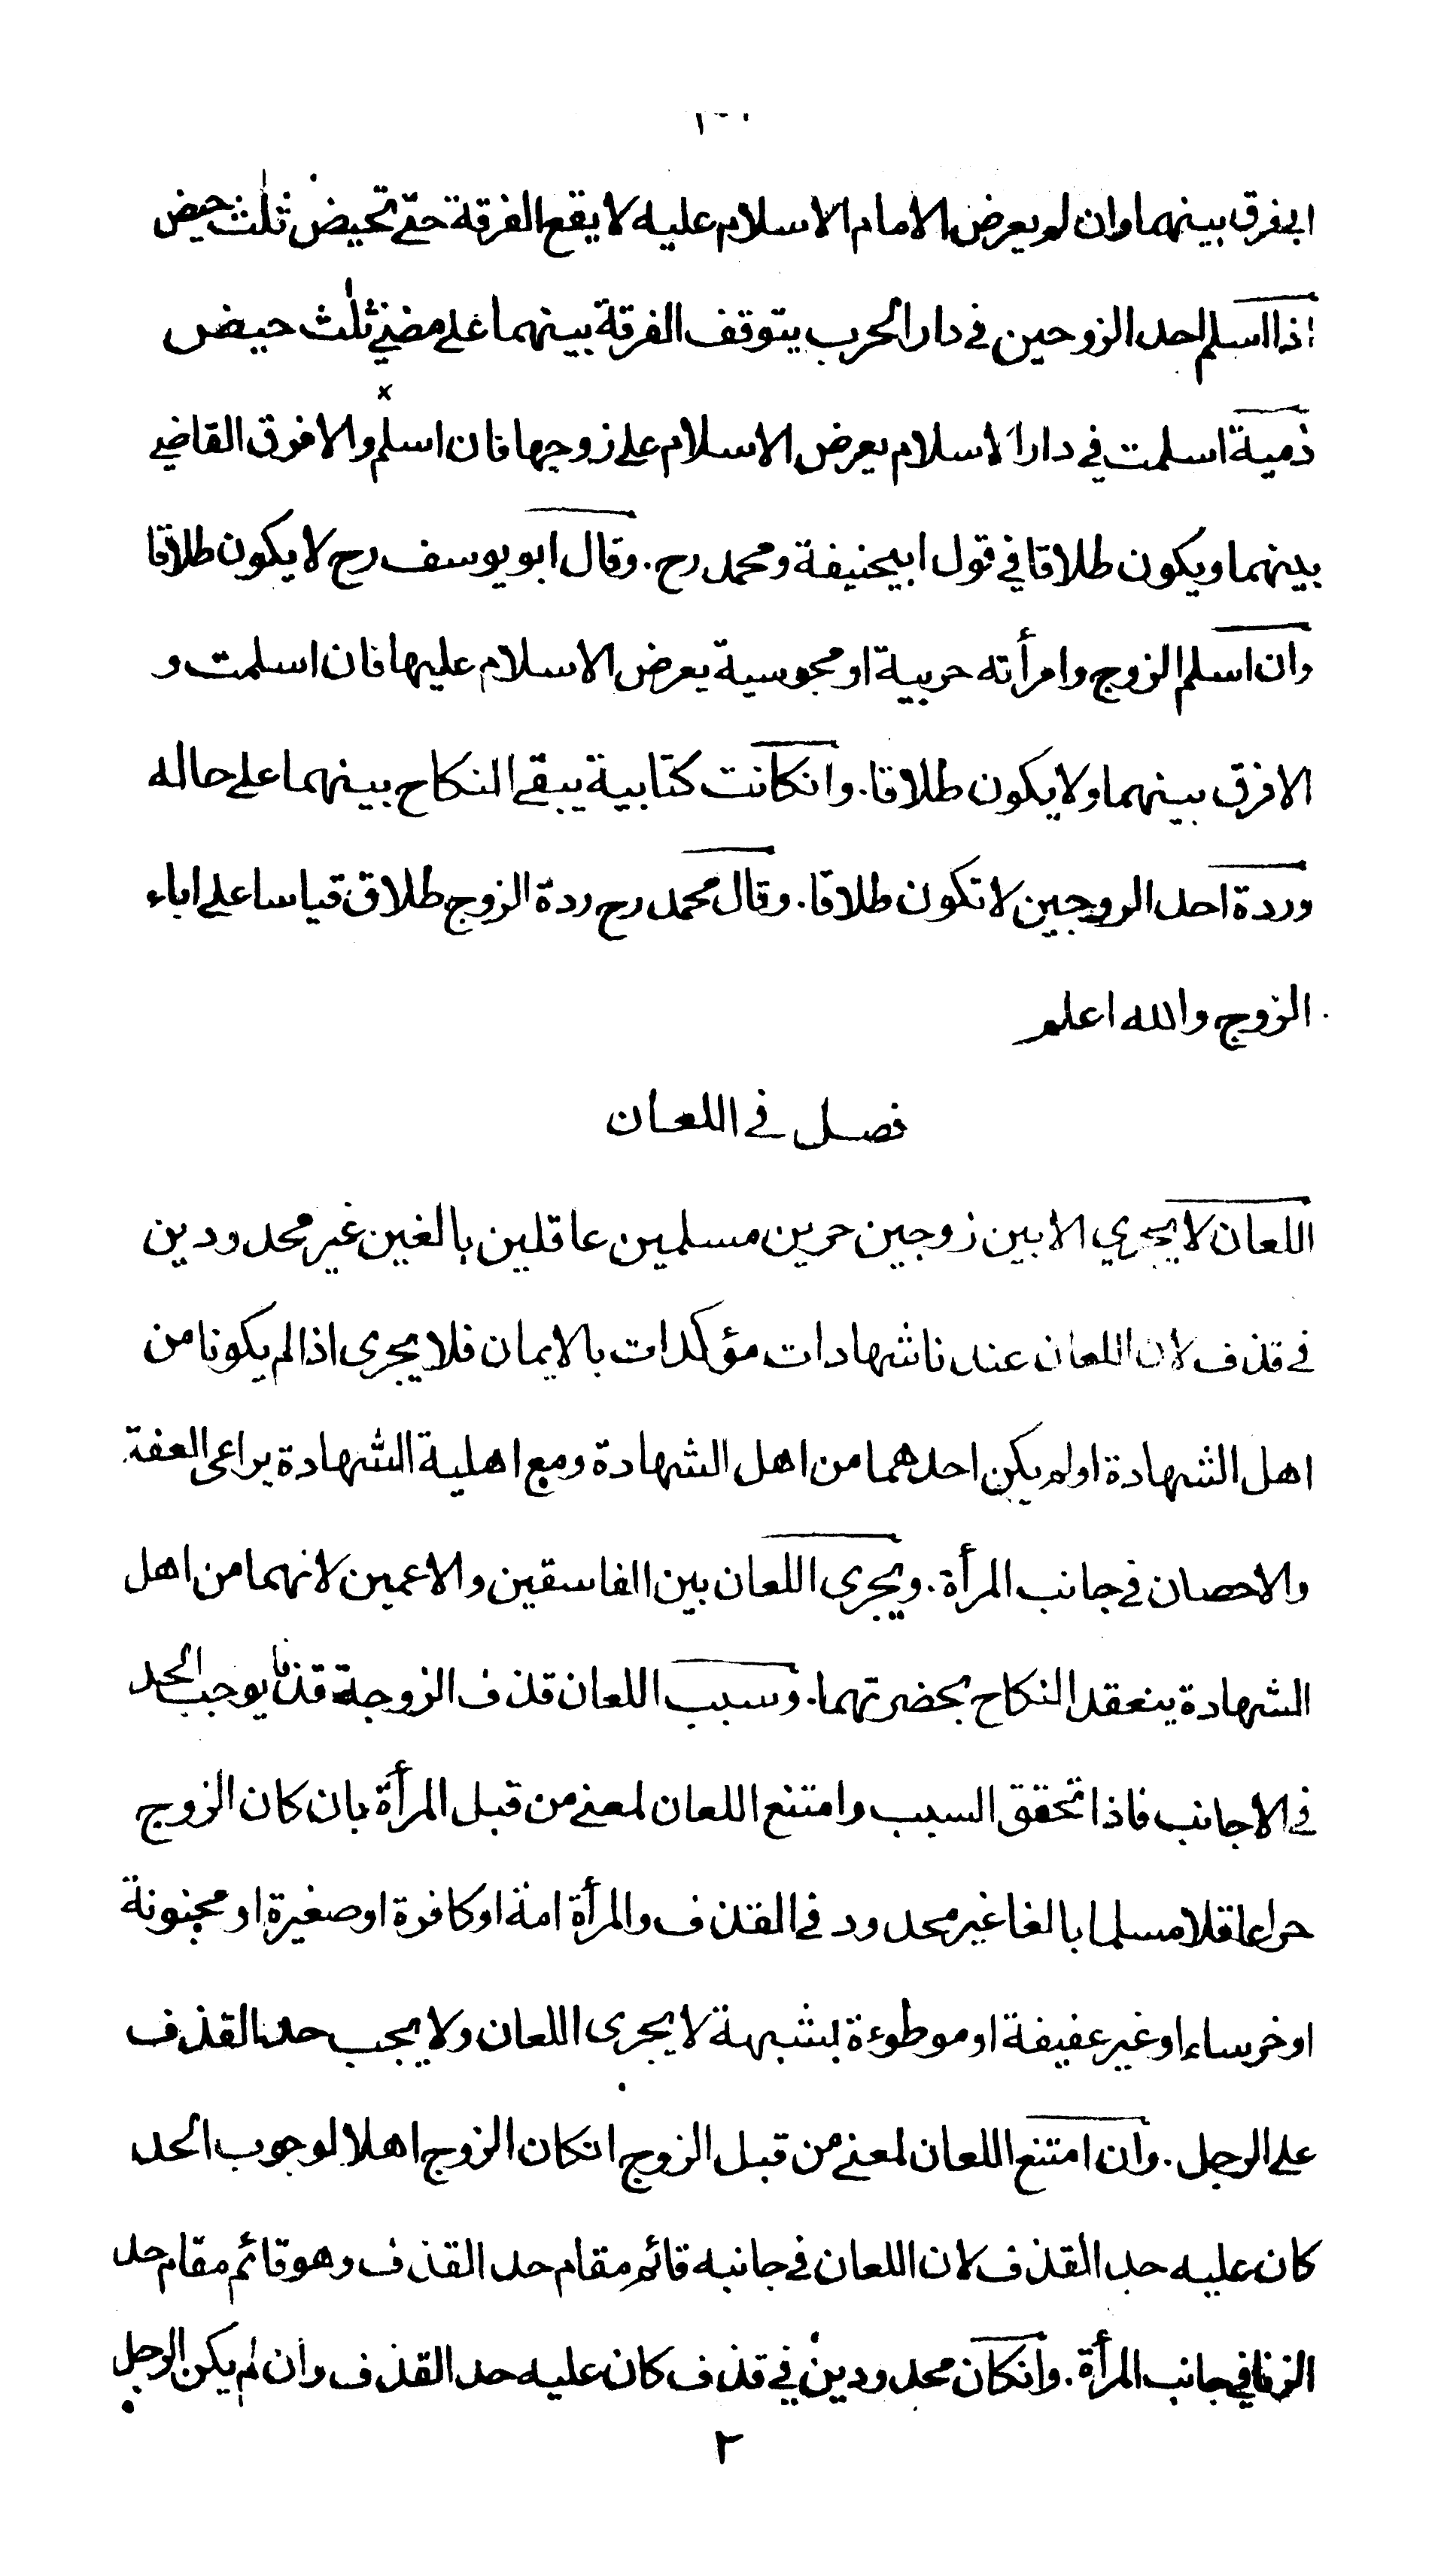 ابى فرق بينهما وان لم يعرض الامام الاسلام عليه لا يقع الفرقة حتى تحيض ثلث حيض
اذا اسلم احد الزوجين فى دار الحرب يتوقف الفرقة بينهما على مضى ثلث حيض
ذمية اسلمت في دار الاسلام يعرض الاسلام على زوجها فان اسلم والا فرق القاضى
بينهما ويكون طلاقا في قول ابيحنيفة ومحمد رح. وقال ابو يوسف رح لا يكون طلاقا
وان اسلم الزوج وامرأته حربية او مجوسية يعرض الاسلام عليها فان اسلمت و
الا فرق بينهما ولا يكون طلاقا. وانكانت كتابية يبقى النكاح بينهما على حاله
وردة احد الزوجين لا تكون طلاقا. وقال محمد رح ردة الزوج طلاق قياسا على اباء
الزوج والله اعلم
فصل فى اللعان
اللعان لا يجري الا بين زوجين حرين مسلمين عاقلين بالغين غير محدودين
فى قذف لان اللعان عندنا شهادات مؤكدات بالايمان فلا يجرى اذا لم يكونا من
اهل الشهادة او لم يكن احدهما من اهل الشهادة ومع اهلية الشهادة يراعى العفة
والاحصان فى جانب المرأة. ويجرى اللعان بين الفاسقين والاعمين لانهما من اهل
الشهادة ينعقد النكاح بحضرتهما. وسبب اللعان قذف الزوجة قذفا يوجب الحد
فى الاجانب فاذا تحقق السبب وامتنع اللعان لمعنى من قبل المرأة بان كان الزوج
حرا عاقلا مسلما بالغا غير محدود فى القذف والمرأة امة او كافرة او صغيرة او مجنونة
او خرساء او غير عفيفة او موطوءة بشبهة لا يجرى اللعان ولا يجب حد القذف
على الرجل. وان امتنع اللعان لمعنى من قبل الزوج انكان الزوج اهلا لوجوب الحد
كان عليه حد القذف لان اللعان فى جانبه قائم مقام حد القذف وهو قائم مقام حد
الزنا في جانب المرأة. وانكان محدودين في قذف كان عليه حد القذف وان لم يكن الرجل
٢